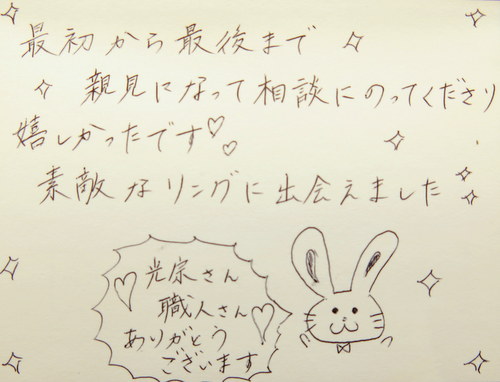 最初から最後まで
親見になって相談にのってくださり
嬉しかったです♡♡
素敵なリングに出会えました
光宗さん
職人さん
ありがとう
ございます